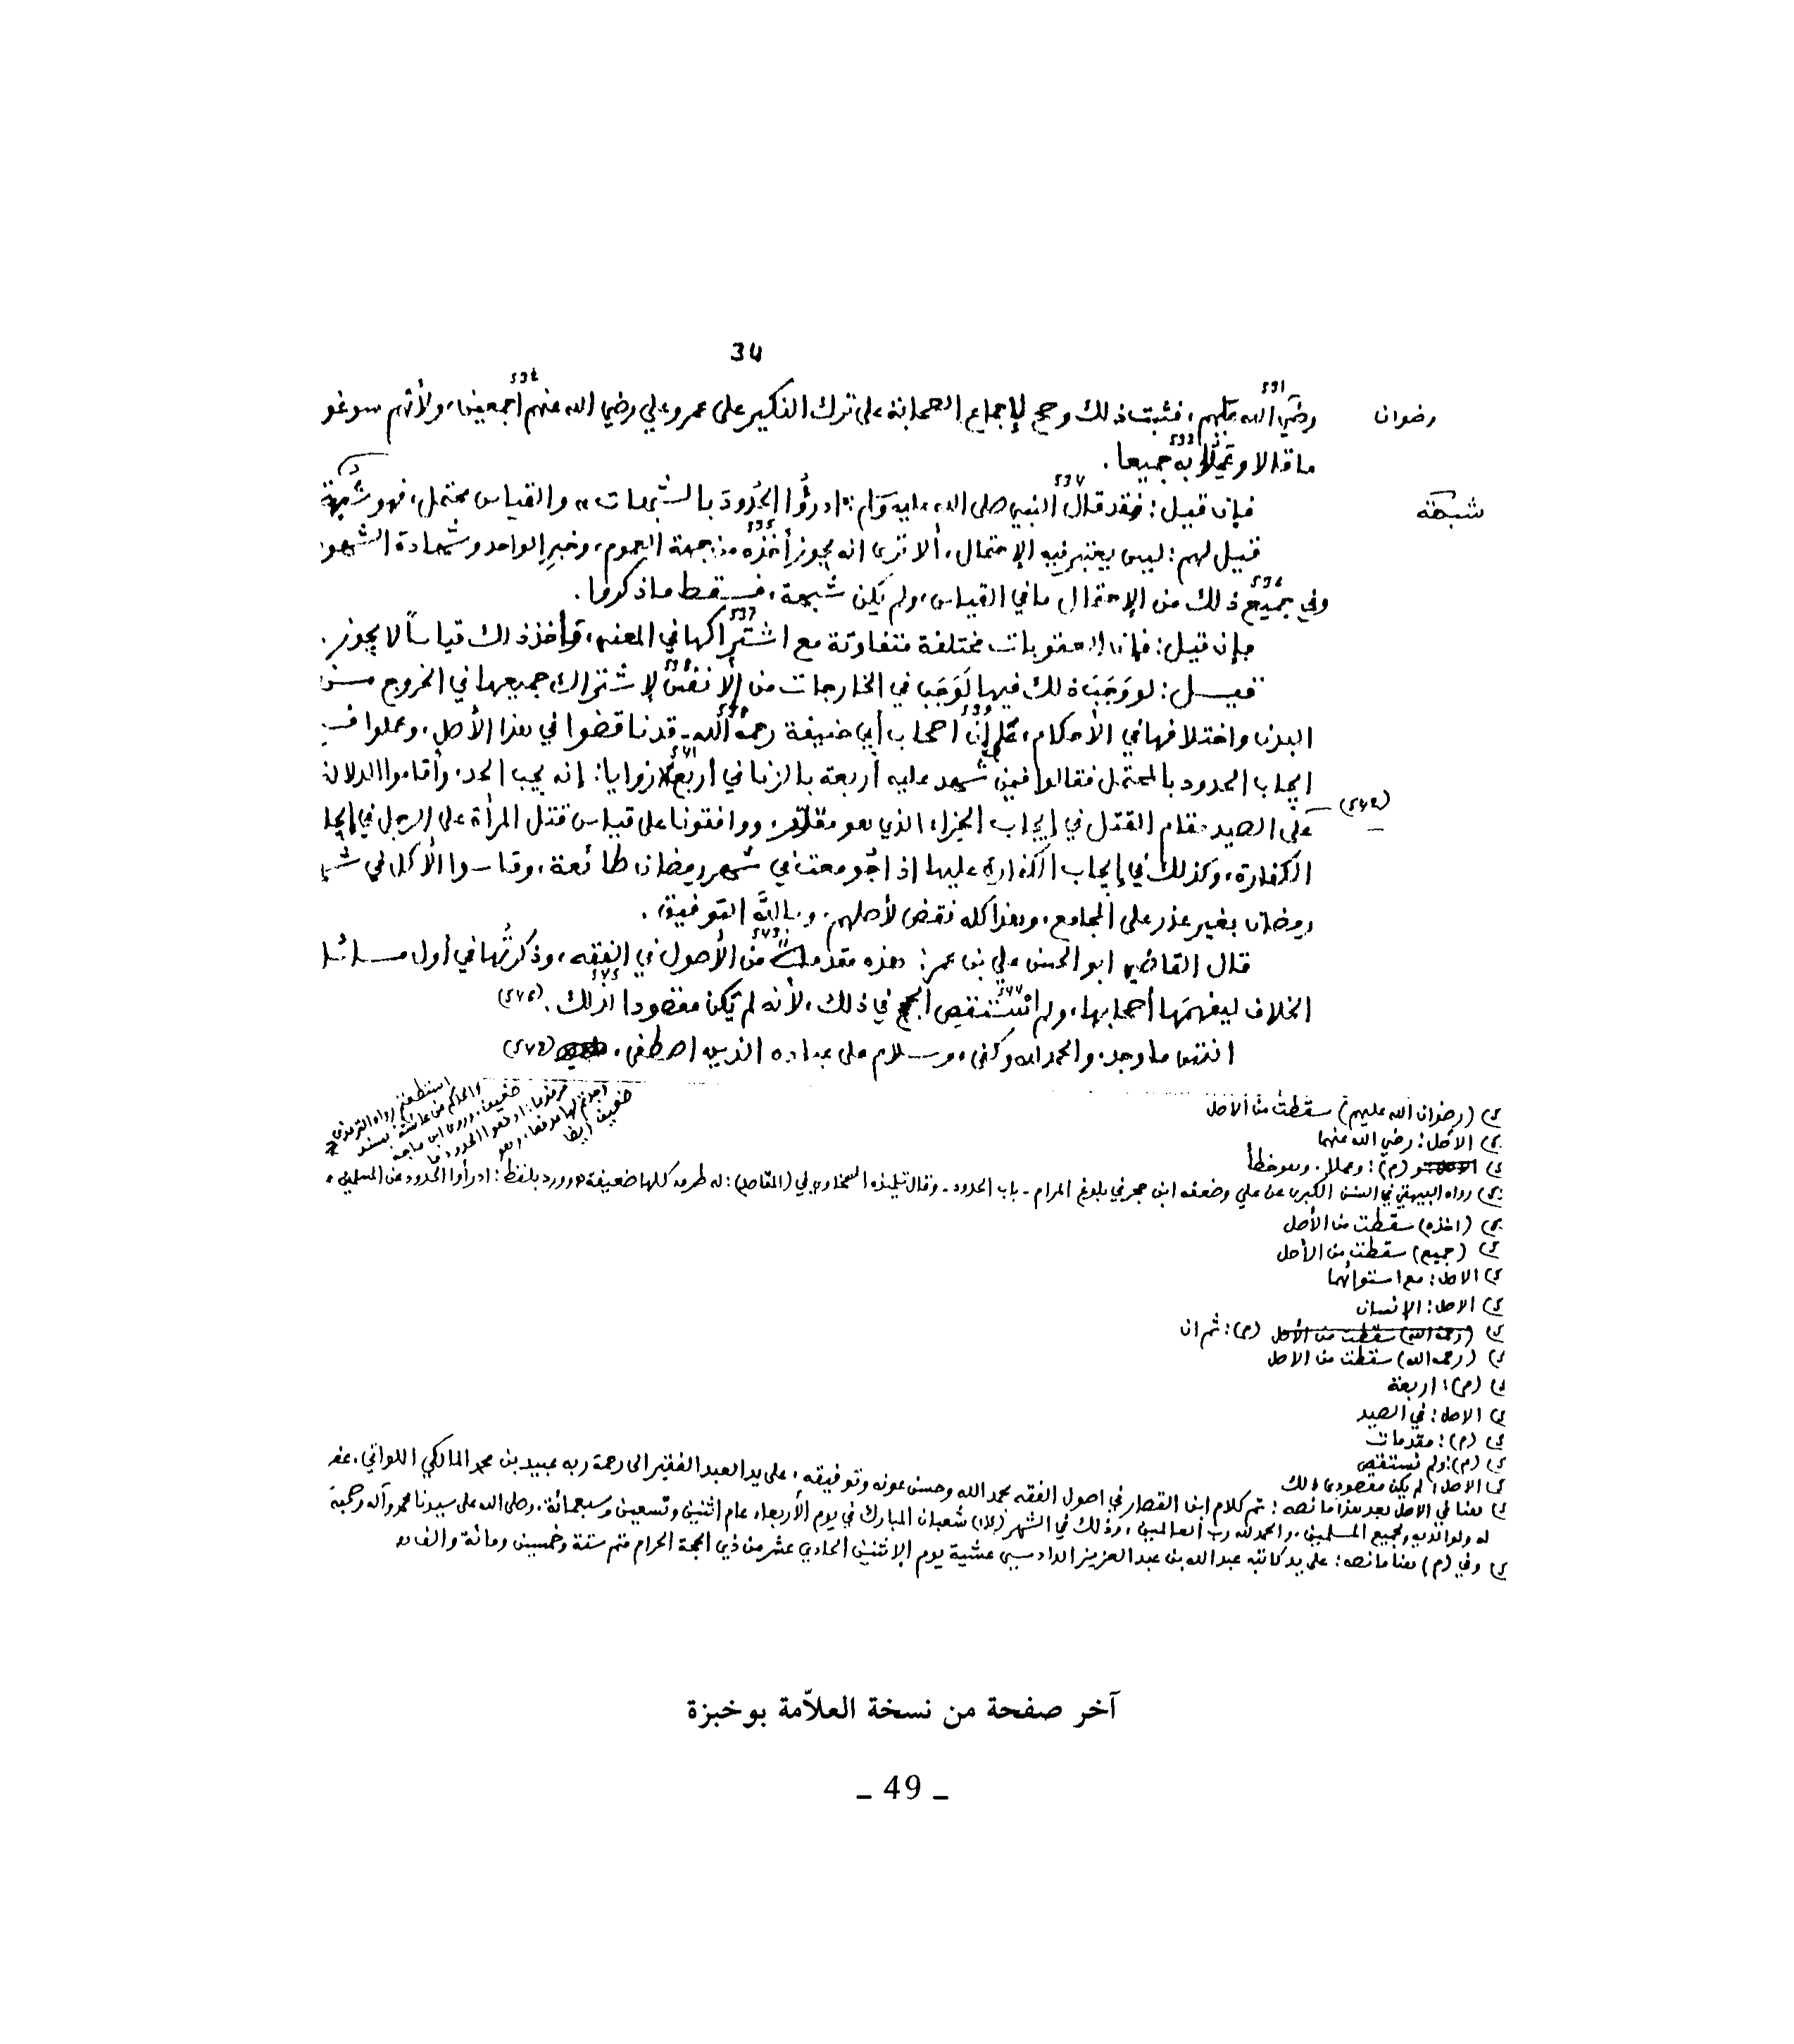 34
رضي الله عنهم، فثبت ذلك وصح لإجماع الصحابة على ترك النكير على عمر وعلي رضي الله عنهم أجمعين، ولأنهم سوغو
رضوان
ما قالا به جميعا.
فإن قيل: فقد قال النبي صلى الله عليه وسلم: "ادرؤا الحدود بالشبهات" والقياس محتمل، فهو شبهة
شبهة
قيل لهم: ليس يعتبر فيه الإحتمال، ألا ترى انه يجوز أخذه من جهة العموم، وخبر الواحد وشهادة الشهود
وفي جميع ذلك من الإحتمال ما في القياس، ولم يكن شبهة، فسقط ما ذكروا.
فإن قيل: فإن العقوبات مختلفة متفاوتة مع اشتراكها في المعنى، وأخذ ذلك قياساً لا يجوز.
قيل: لو وجب ذلك فيها لوجب في الخارجات من الأنفس لإشتراك جميعها في الخروج من
البدن واختلافها في الأحكام، على أن أصحاب أبي حنيفة رحمه الله - قد ناقضوا في هذا الأصل، وعملوا في
ايجاب الحدود بالمحتمل فقالوا فيمن شهد عليه أربعة بالزنا في أربع زوايا: إنه يجب الحد، وأقاموا الدلالة
على الصيد مقام القتل في إيجاب الجزاء الذي هو مقدر، ووافقونا على قياس قتل المرأة على الرجل في إيجا
الكفارة، وكذلك في إيجاب الكفارة عليها اذا جومعت في شهر رمضان طائعة، وقاسوا الأكل في شهر
رمضان بغير عذر على المجامع، وهذا كله نقض لأصلهم. وبالله التوفيق.
قال القاضي ابو الحسن علي بن عمر: هذه مقدمات من الأصول في الفقه، وذكرتها في أول مسائل
الخلاف ليفهمها أصحابها، ولم أستقص الحجج في ذلك، لأنه لم يكن مقصودا لذلك.
انتهى ما وجد، والحمد لله وكفى، وسلام على عباده الذين اصطفى.
(رضوان الله عليهم) سقطت من الأصل
الأصل: رضي الله عنهما
(م): وعملا. وهو خطأ
رواه البيهقي في السنن الكبرى عن علي وضعفه ابن حجر في بلوغ المرام - باب الحدود - وقال تلميذه السخاوي في (المقاصد): له طرق كلها ضعيفة، وورد بلفظ: ادرأوا الحدود عن المسلمين ما
استطعتم رواه الترمذي
والحاكم عن عائشة بسند
ضعيف. وروى ابن ماجه
مرفوعا: ادفعوا الحدود ما
وجدتم لها مدفعا، وهو
ضعيف أيضا
(اخذه) سقطت من الأصل
(جميع) سقطت من الأصل
الاصل: مع استوائهما
الاصل: الإنسان
(رحمه الله) سقطت من الأصل (م): ثم ان
(رحمه الله) سقطت من الاصل
(م): اربعة
الاصل: في الصيد
(م): مقدمات
(م): ولم نستقص
الاصل: لم يكن مقصود بذلك
هنا في الاصل بعد هذا ما نصه: تم كلام ابن القصار في اصول الفقه بحمد الله وحسن عونه وتوفيقه، على يد العبد الفقير الى رحمة ربه عبيد بن محمد المالكي اللواتي، غفر
له ولوالديه ولجميع المسلمين، والحمد لله رب العالمين، وذلك في الشهر شعبان المبارك في يوم الأربعاء عام اثنين وتسعين وسبعمائة. وصلى الله على سيدنا محمد وآله وصحبه
وفي (م) هنا ما نصه: على يد كاتبه عبد الله بن عبد العزيز عشية يوم الإثنين الحادي عشر من ذي الحجة الحرام متم ستة وخمسين ومائة والف
آخر صفحة من نسخة العلاّمة بوخبزة
_ 49 _